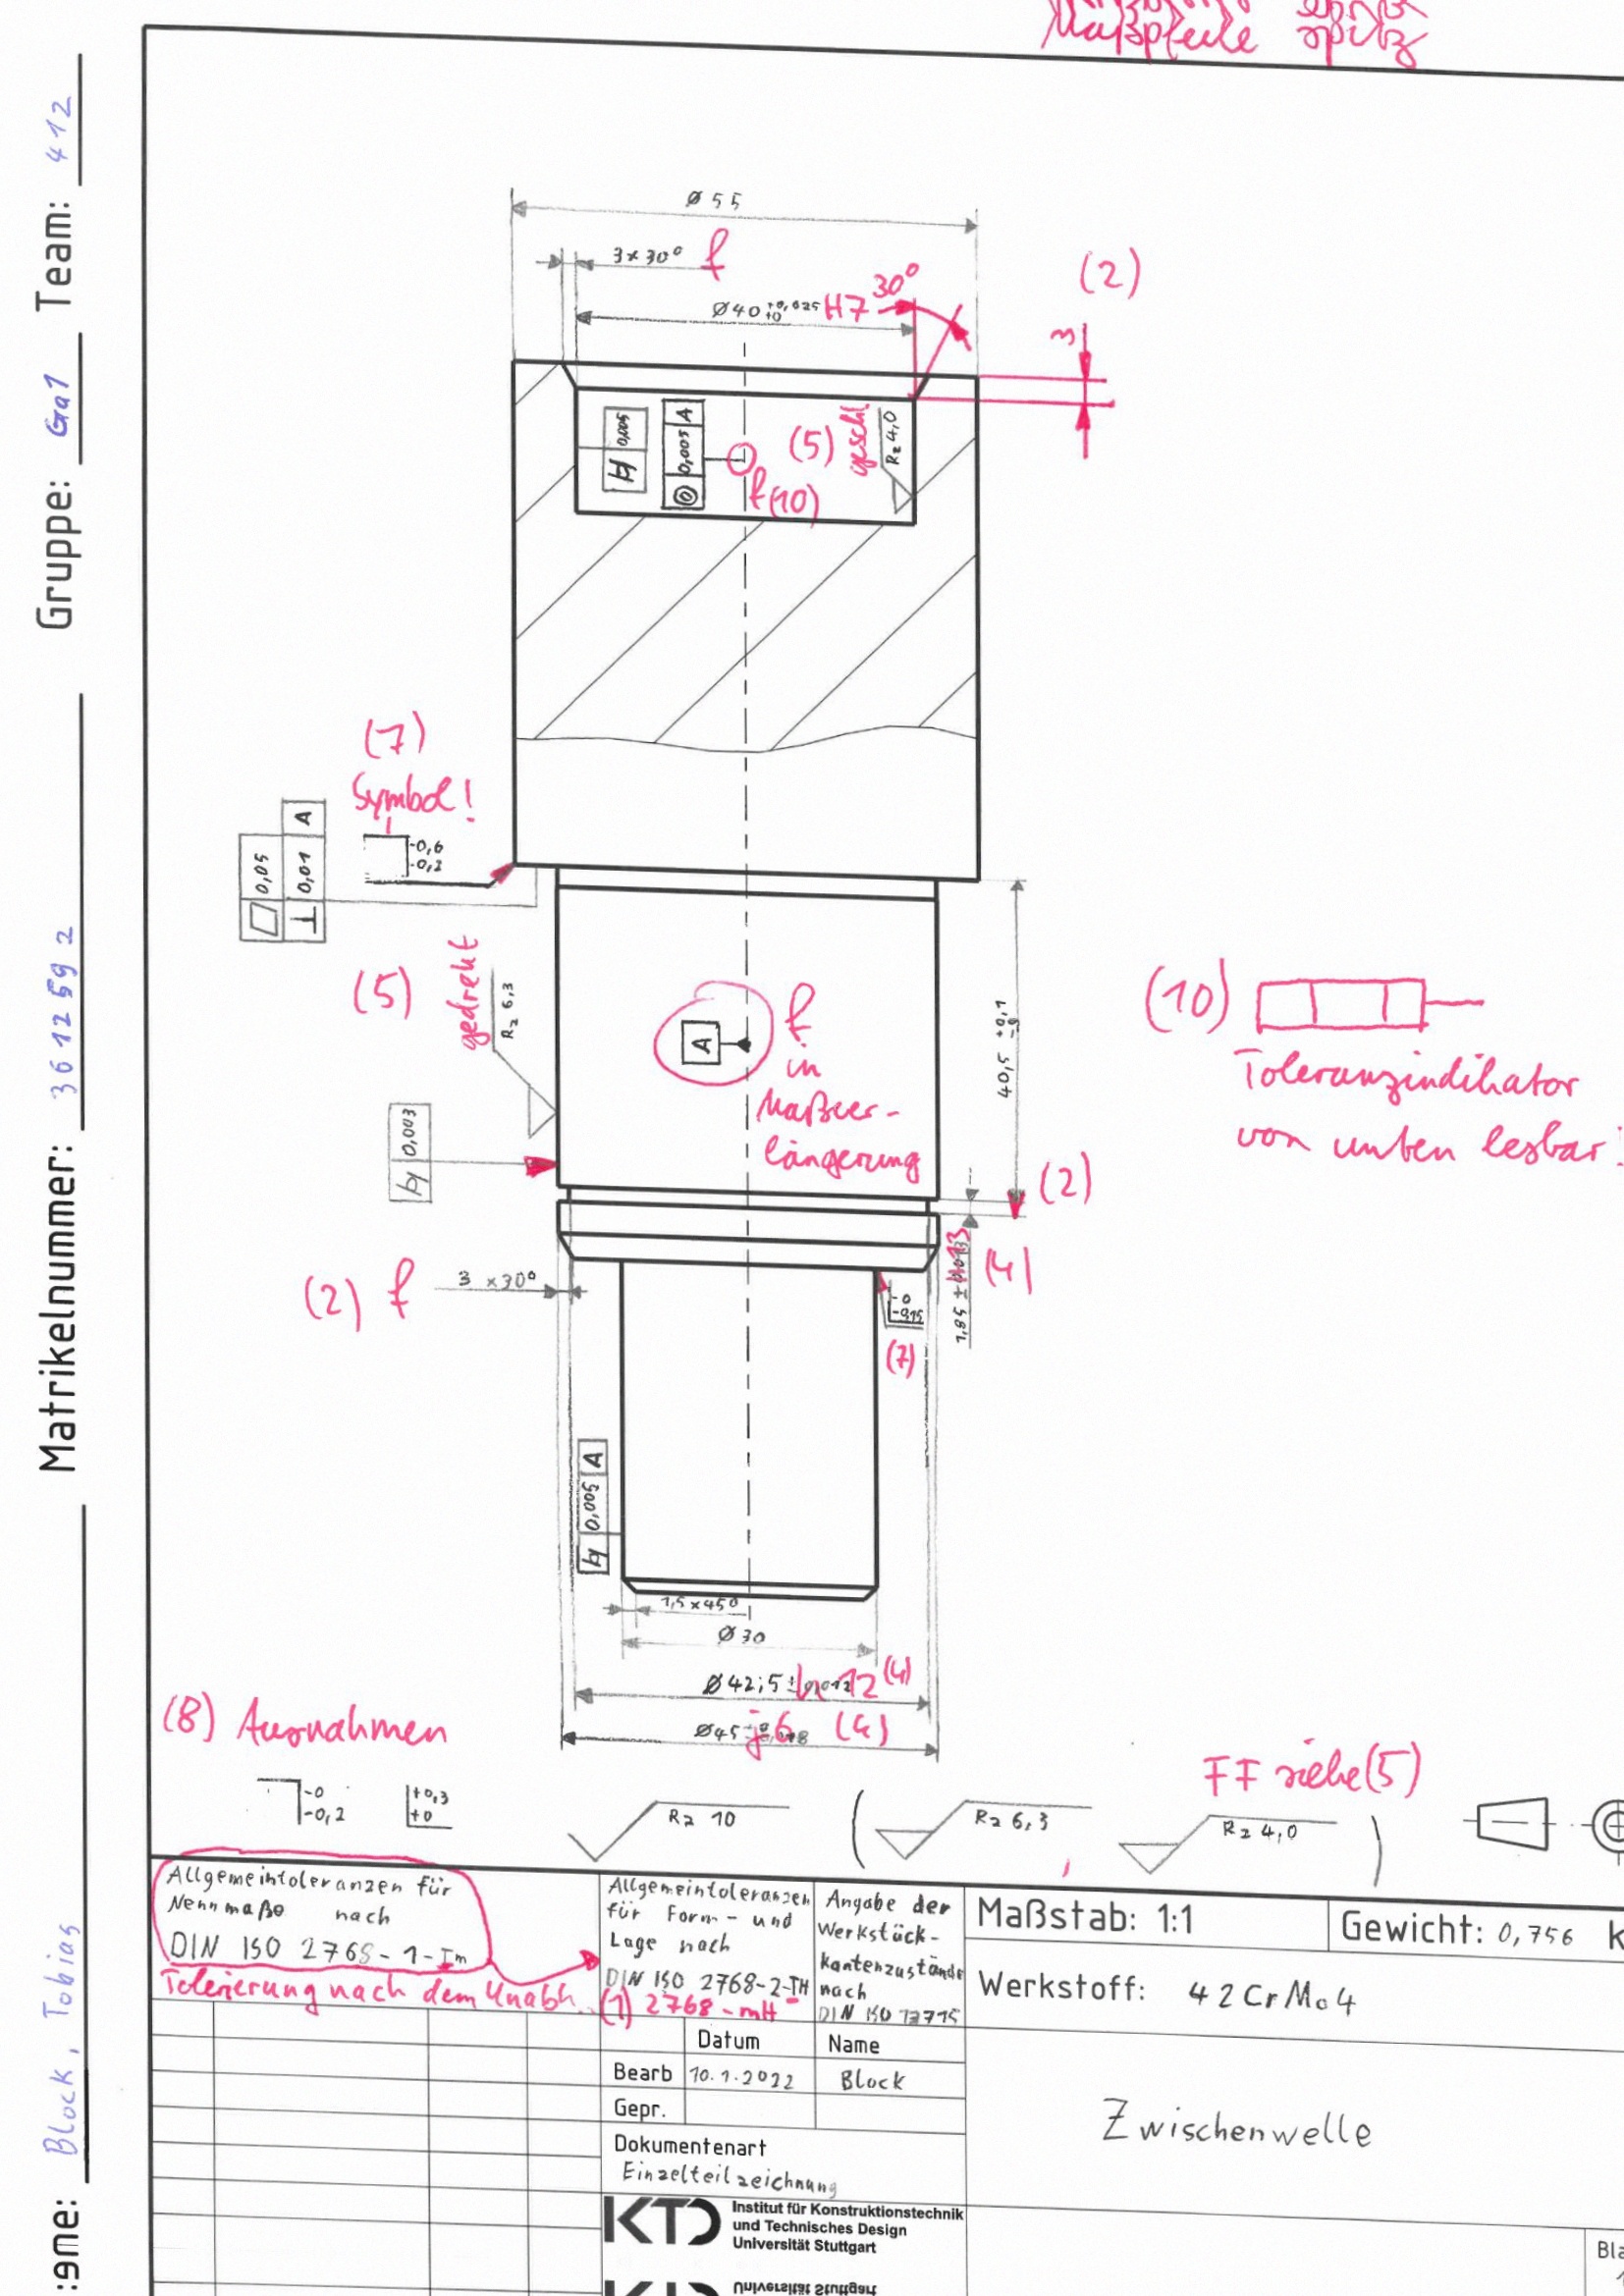 Maßpfeile spitz
Team: 412
Gruppe: Ga1
Matrikelnummer: 3612592
Block, Tobias
Ø 55
3×30° f
30°
(2)
Ø40 +0,025 +0 H7
3
0,005
0,005 A
(5) geschl
Rz 4,0
f (10)
(7)
Symbol!
-0,6
0,05
0,01 A
(5) gedreht
Rz 6,3
A
f
in
Maßver-
längerung
40,5 +0,1
(10)
Toleranzindikator
von unten lesbar!
0,003
(2)
(2) f
3 ×30°
H13 (4)
-0
(7)
0,005 A
1,5×45°
Ø 30
Ø42,5 h12 (4)
Ø45 j6 (4)
(8) Ausnahmen
FF siehe (5)
-0
-0,2
+0,3
+0
Rz 10
( Rz 6,3 , Rz 4,0 )
Allgemeintoleranzen für
Nennmaße nach
DIN ISO 2768-1-m
Tolerierung nach dem Unabh.
Allgemeintoleranzen
für Form- und
Lage nach
DIN ISO 2768-2-TH
(1) 2768-mH
Angabe der
Werkstück-
kantenzustände
nach
DIN ISO 13715
Maßstab: 1:1
Gewicht: 0,756 k
Werkstoff: 42CrMo4
Datum Name
Bearb 10.1.2022 Block
Gepr.
Zwischenwelle
Dokumentenart
Einzelteilzeichnung
KTD
Institut für Konstruktionstechnik
und Technisches Design
Universität Stuttgart
Bla